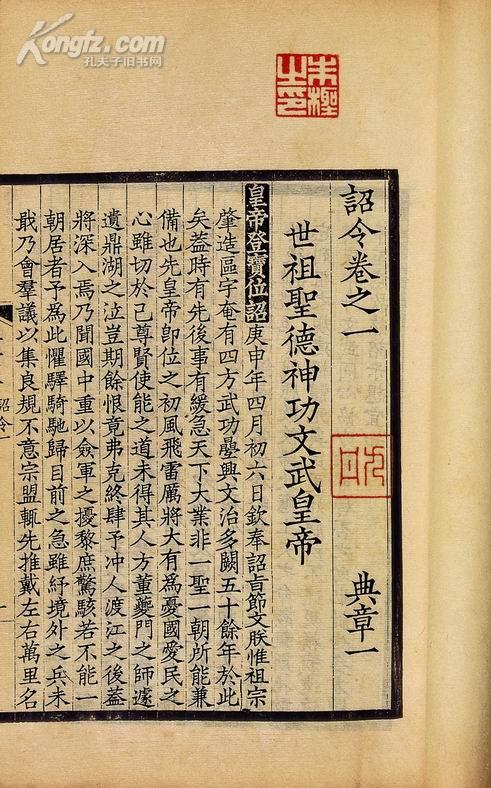 Kongfz.com
孔夫子旧书网
詔令卷之一 典章一
世祖聖德神功文武皇帝
皇帝登寶位詔庚申年四月初六日欽奉詔旨節文朕惟祖宗
肇造區宇奄有四方武功疊興文治多闕五十餘年於此
矣葢時有先後事有緩急天下大業非一聖一朝所能兼
備也先皇帝卽位之初風飛雷厲將大有為憂國愛民之
心雖切於己尊賢使能之道未得其人方董夔門之師遽
遺鼎湖之泣豈期餘恨竟弗克終肆予冲人渡江之後葢
將深入焉乃聞國中重以僉軍之擾黎庶驚駭若不能一
朝居者予為此懼驛騎馳歸目前之急雖紓境外之兵未
戢乃會羣議以集良規不意宗盟輒先推戴左右萬里名
詔令一